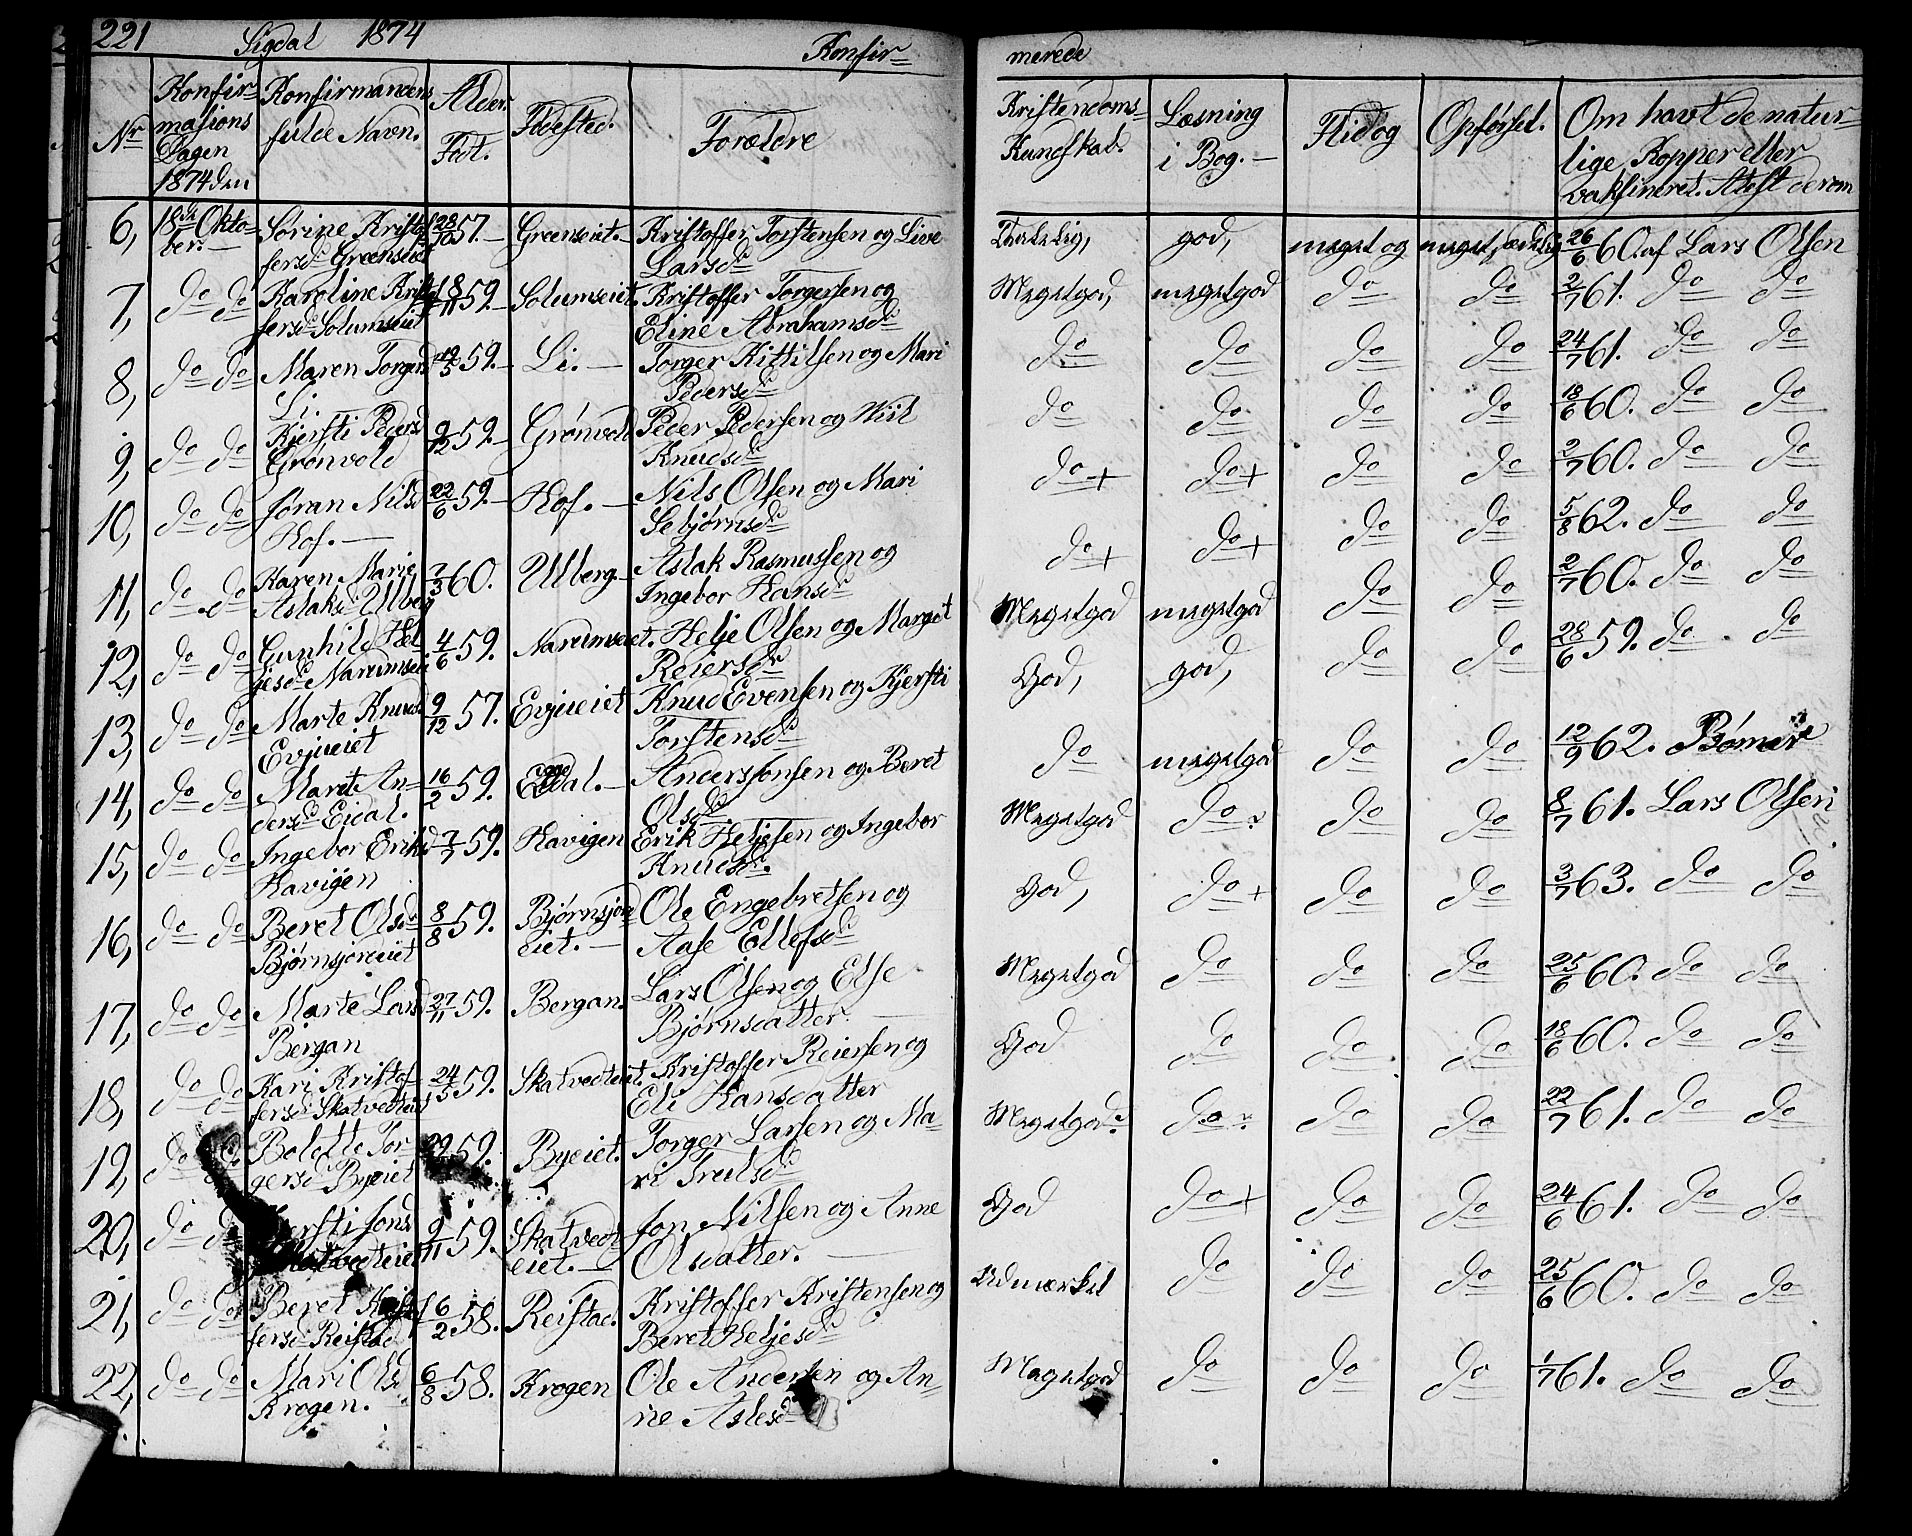 221 Sigdal 1874 Konfir= merede
Nr Konfir= masions Dagen 1874 den Konfirmandens fulde Navn. Alder. Fdt. Fdested. Forældre Kristendoms= Kundskab. Læsning i Bog. — Flid og Opførsel. Om havt de natur= lige Kopper eller vaksineret. Atest derom
6, 18de Okto= ber. — Sørine Kristof fersd Greenseiet 28/10 57. — Greenseiet. — Kristoffer Torstensen og Live Larsd god, meget og 26/6 60. af Lars Olsen
7, do do Karoline Kristof fersd Solumseiet 18/11 59. — Solumseiet. Kristoffer Torgersen og Eline Abrahamsd Megetgod, megetgod do do 2/7 61. do do
8, do do Maren Torgersd Li. 59. — Li. — Torger Kittilsen og Mari Pedersd do do do do 24/7 61. do do
9, do do Kjersti Peders Grønvold 9/12 59. — Grønvold Peder Pedersen og Knudsd do do do do 18/6 60. do do
10, do do Jøran Nilsd Hof. — 22/6 59. — Hof. — Nils Olsen og Mari Sebjørnsd do + do + do do 2/7 60. do do
11, do do Karen Marie Aslaksd Ulberg 7/3 60. Ulberg — Aslak Rasmussen og Ingebor Hansd do + do + do do 5/8 62. do do
12, do do Gunhild Hel jesd Narumseie 4/6 59. Narumseiet. Helje Olsen og Margit Reiersdr Megetgod megetgod do do 2/7 60. do do
13, do do Marte Knudsd Evjueiet 9/12 57. Evjueiet Knud Evensen og Kjersti Torstensd God, god, do do 28/6 59. do do
14, do do Maret An= dersd Eidal. 16/2 59. Eidal. — Anders Jonsen og Beret Olsd do megetgod do do 12/9 62. Bømer
15, do do Ingebor Eriksd Havigen 7/7 59. Havigen Erik Heljesen og Ingebor Knudsdr. Megetgod do do do 8/7 61. Lars Olsen
16, do do Beret Olsdr Bjørnsjøreiet 8/8 59. Bjørnsjør eiet. — Ole Engebretsen og Aase Ellefsd God, do + do do 3/7 63. do do
17, do do Marte Larsd Bergan 27/11 59. Bergan. Lars Olsen og Else Bjørnsdatter. — Megetgod do do do 25/6 60. do do
18, do do Kari Kristof= fersd Skatvedteiet 24/5 59. Skatvedteiet. Kristoffer Reiersen og Eli Hansdatter God do do do 18/6 60. do do
19, do do Bolette Tor= gersd Byeiet 59. Byeiet. Torger Larsen og Ma= ri Trulsd Megetgod do do do 22/7 61. do do
20, do do Kjersti Jonsd Skatvedteiet 9/11 59. Skatvedt eiet. — Jon Nilsen og Anne Olsdatter. — God do + do do 24/6 61. do do
21, do do Beret Kristof fersd Reistad 16/2 58. Reistad. Kristoffer Kristensen og Beret Heljesd Udmærket do do do 25/6 60. do do
22, do do Mari Olsd Krogen. 6/8 58. Krogen Ole Andersen og An= ne Aslesd Megetgod do do do 1/7 61. do do